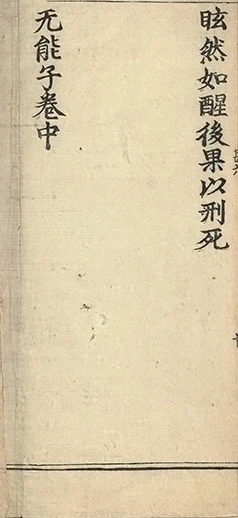 眩然如醒後果以刑死
无能子卷中